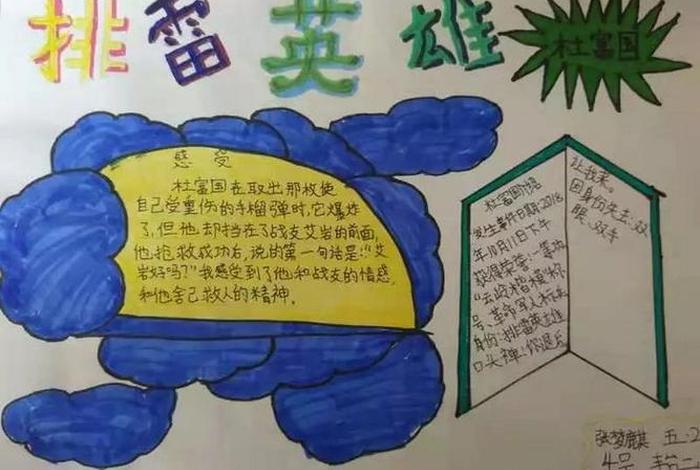 排雷英雄
杜富国
感受
杜富国在取出那枚使
自己受重伤的手榴弹时,它爆炸
了,但他却挡在了战支艾岩的前面,
他抢救成功后,说的第一句话是:"艾
岩好吗?"我感受到了他和战支的情感,
和他舍己救人的精神。
发生事件日期:2018
年10月11日下午
获得荣誉:一等功
号、革命军人
身份:排雷英雄
口头禅:你退后
让我来。
因身份失去:双
眼、双手
张梦麒 五·2
4号